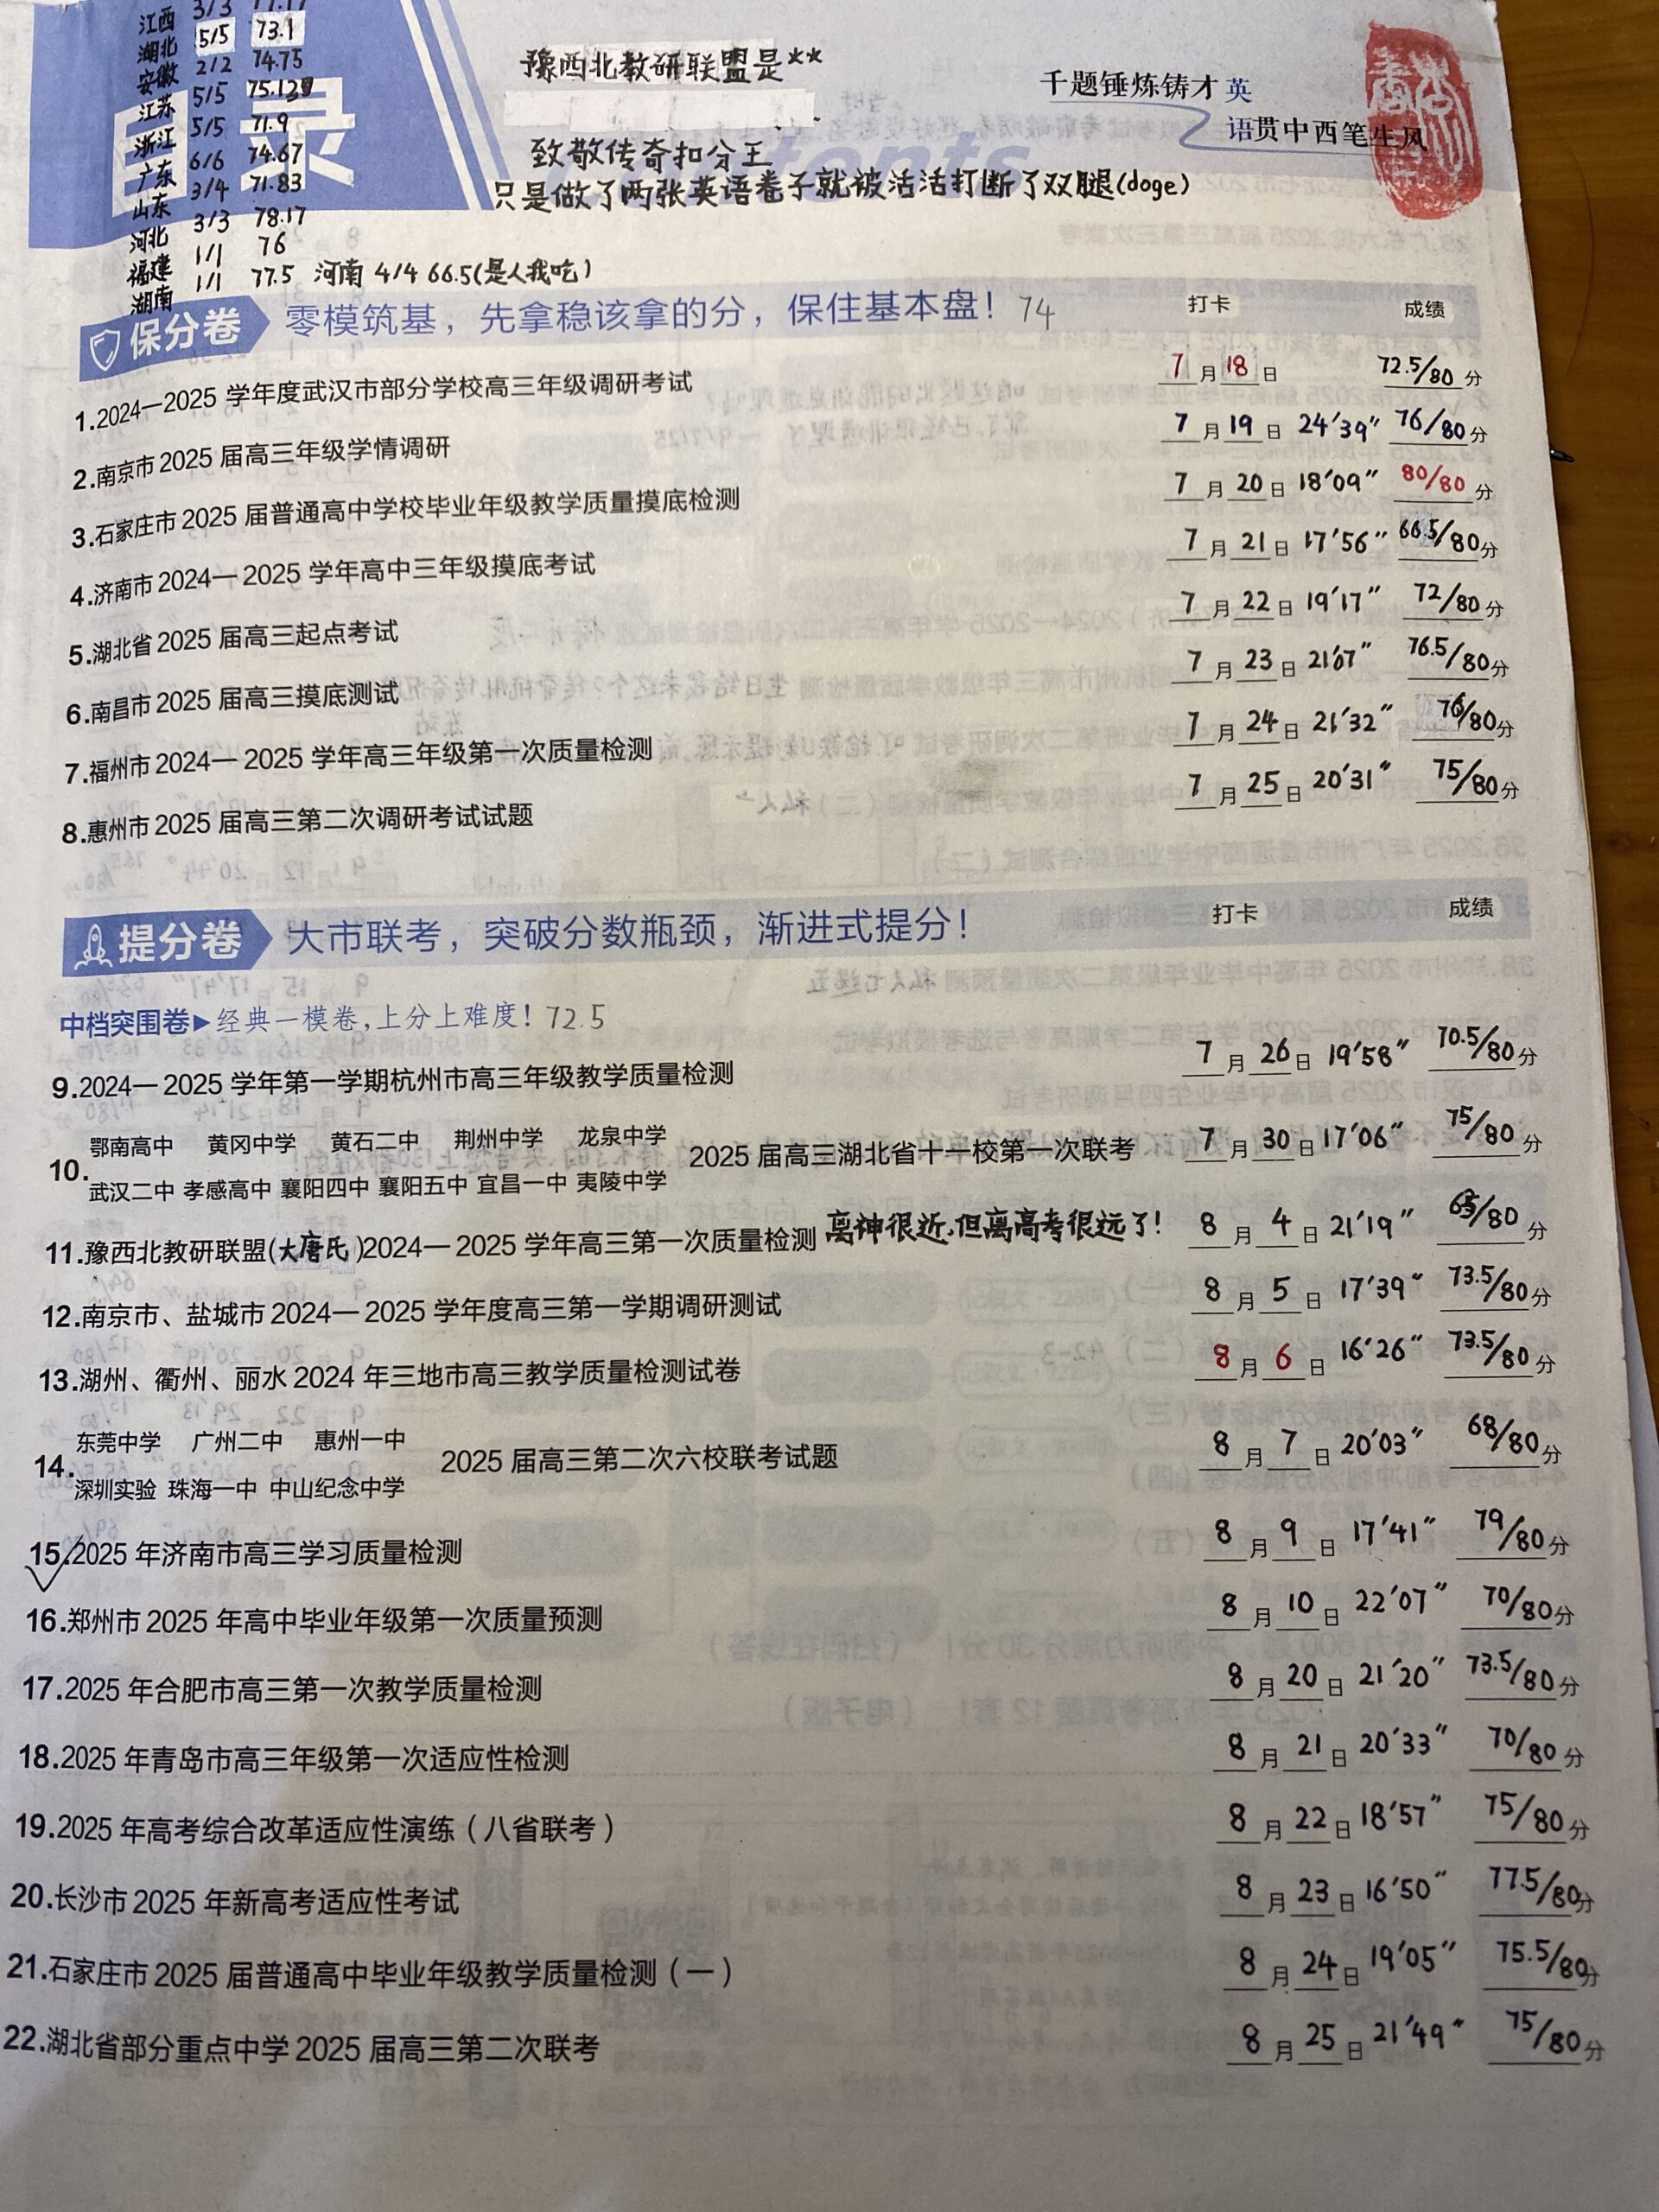 江西 3/3 77.17
湖北 5/5 73.1
安徽 2/2 74.75
江苏 5/5
浙江 5/5 71.9
广东 6/6 74.67
山东 3/4 71.83
河北 3/3 78.17
福建 1/1 76
湖南 1/1 77.5 河南 4/4 66.5(是人我吃)
目录
豫西北教研联盟是**
致敬传奇扣分王
只是做了两张英语卷子就被活活打断了双腿(doge)
千题锤炼铸才英
语贯中西笔生风
保分卷 零模筑基，先拿稳该拿的分，保住基本盘！ 74 打卡 成绩
1.2024—2025 学年度武汉市部分学校高三年级调研考试 7 月 18 日 72.5/80 分
2.南京市 2025 届高三年级学情调研 7 月 19 日 24′39″ 76/80 分
3.石家庄市 2025 届普通高中学校毕业年级教学质量摸底检测 7 月 20 日 18′09″ 80/80 分
4.济南市 2024—2025 学年高中三年级摸底考试 7 月 21 日 17′56″ 66.5/80 分
5.湖北省 2025 届高三起点考试 7 月 22 日 19′17″ 72/80 分
6.南昌市 2025 届高三摸底测试 7 月 23 日 21′07″ 76.5/80 分
7.福州市 2024—2025 学年高三年级第一次质量检测 7 月 24 日 21′32″ 76/80 分
8.惠州市 2025 届高三第二次调研考试试题 7 月 25 日 20′31″ 75/80 分
提分卷 大市联考，突破分数瓶颈，渐进式提分！ 打卡 成绩
中档突围卷▶经典一模卷，上分上难度！ 72.5
9.2024—2025 学年第一学期杭州市高三年级教学质量检测 7 月 26 日 19′58″ 70.5/80 分
鄂南高中 黄冈中学 黄石二中 荆州中学 龙泉中学
10. 2025 届高三湖北省十一校第一次联考 7 月 30 日 17′06″ 75/80 分
武汉二中 孝感高中 襄阳四中 襄阳五中 宜昌一中 夷陵中学
11.豫西北教研联盟(大唐氏)2024—2025 学年高三第一次质量检测 离神很近，但离高考很远了！ 8 月 4 日 21′19″ /80 分
12.南京市、盐城市 2024—2025 学年度高三第一学期调研测试 8 月 5 日 17′39″ 73.5/80 分
13.湖州、衢州、丽水 2024 年三地市高三教学质量检测试卷 8 月 6 日 16′26″ 73.5/80 分
东莞中学 广州二中 惠州一中
14. 2025 届高三第二次六校联考试题 8 月 7 日 20′03″ 68/80 分
深圳实验 珠海一中 中山纪念中学
15.2025 年济南市高三学习质量检测 8 月 9 日 17′41″ 79/80 分
16.郑州市 2025 年高中毕业年级第一次质量预测 8 月 10 日 22′07″ 70/80 分
17.2025 年合肥市高三第一次教学质量检测 8 月 20 日 21′20″ 73.5/80 分
18.2025 年青岛市高三年级第一次适应性检测 8 月 21 日 20′33″ 70/80 分
19.2025 年高考综合改革适应性演练（八省联考） 8 月 22 日 18′57″ 75/80 分
20.长沙市 2025 年新高考适应性考试 8 月 23 日 16′50″ 77.5/80 分
21.石家庄市 2025 届普通高中毕业年级教学质量检测（一） 8 月 24 日 19′05″ 75.5/80 分
22.湖北省部分重点中学 2025 届高三第二次联考 8 月 25 日 21′49″ 75/80 分